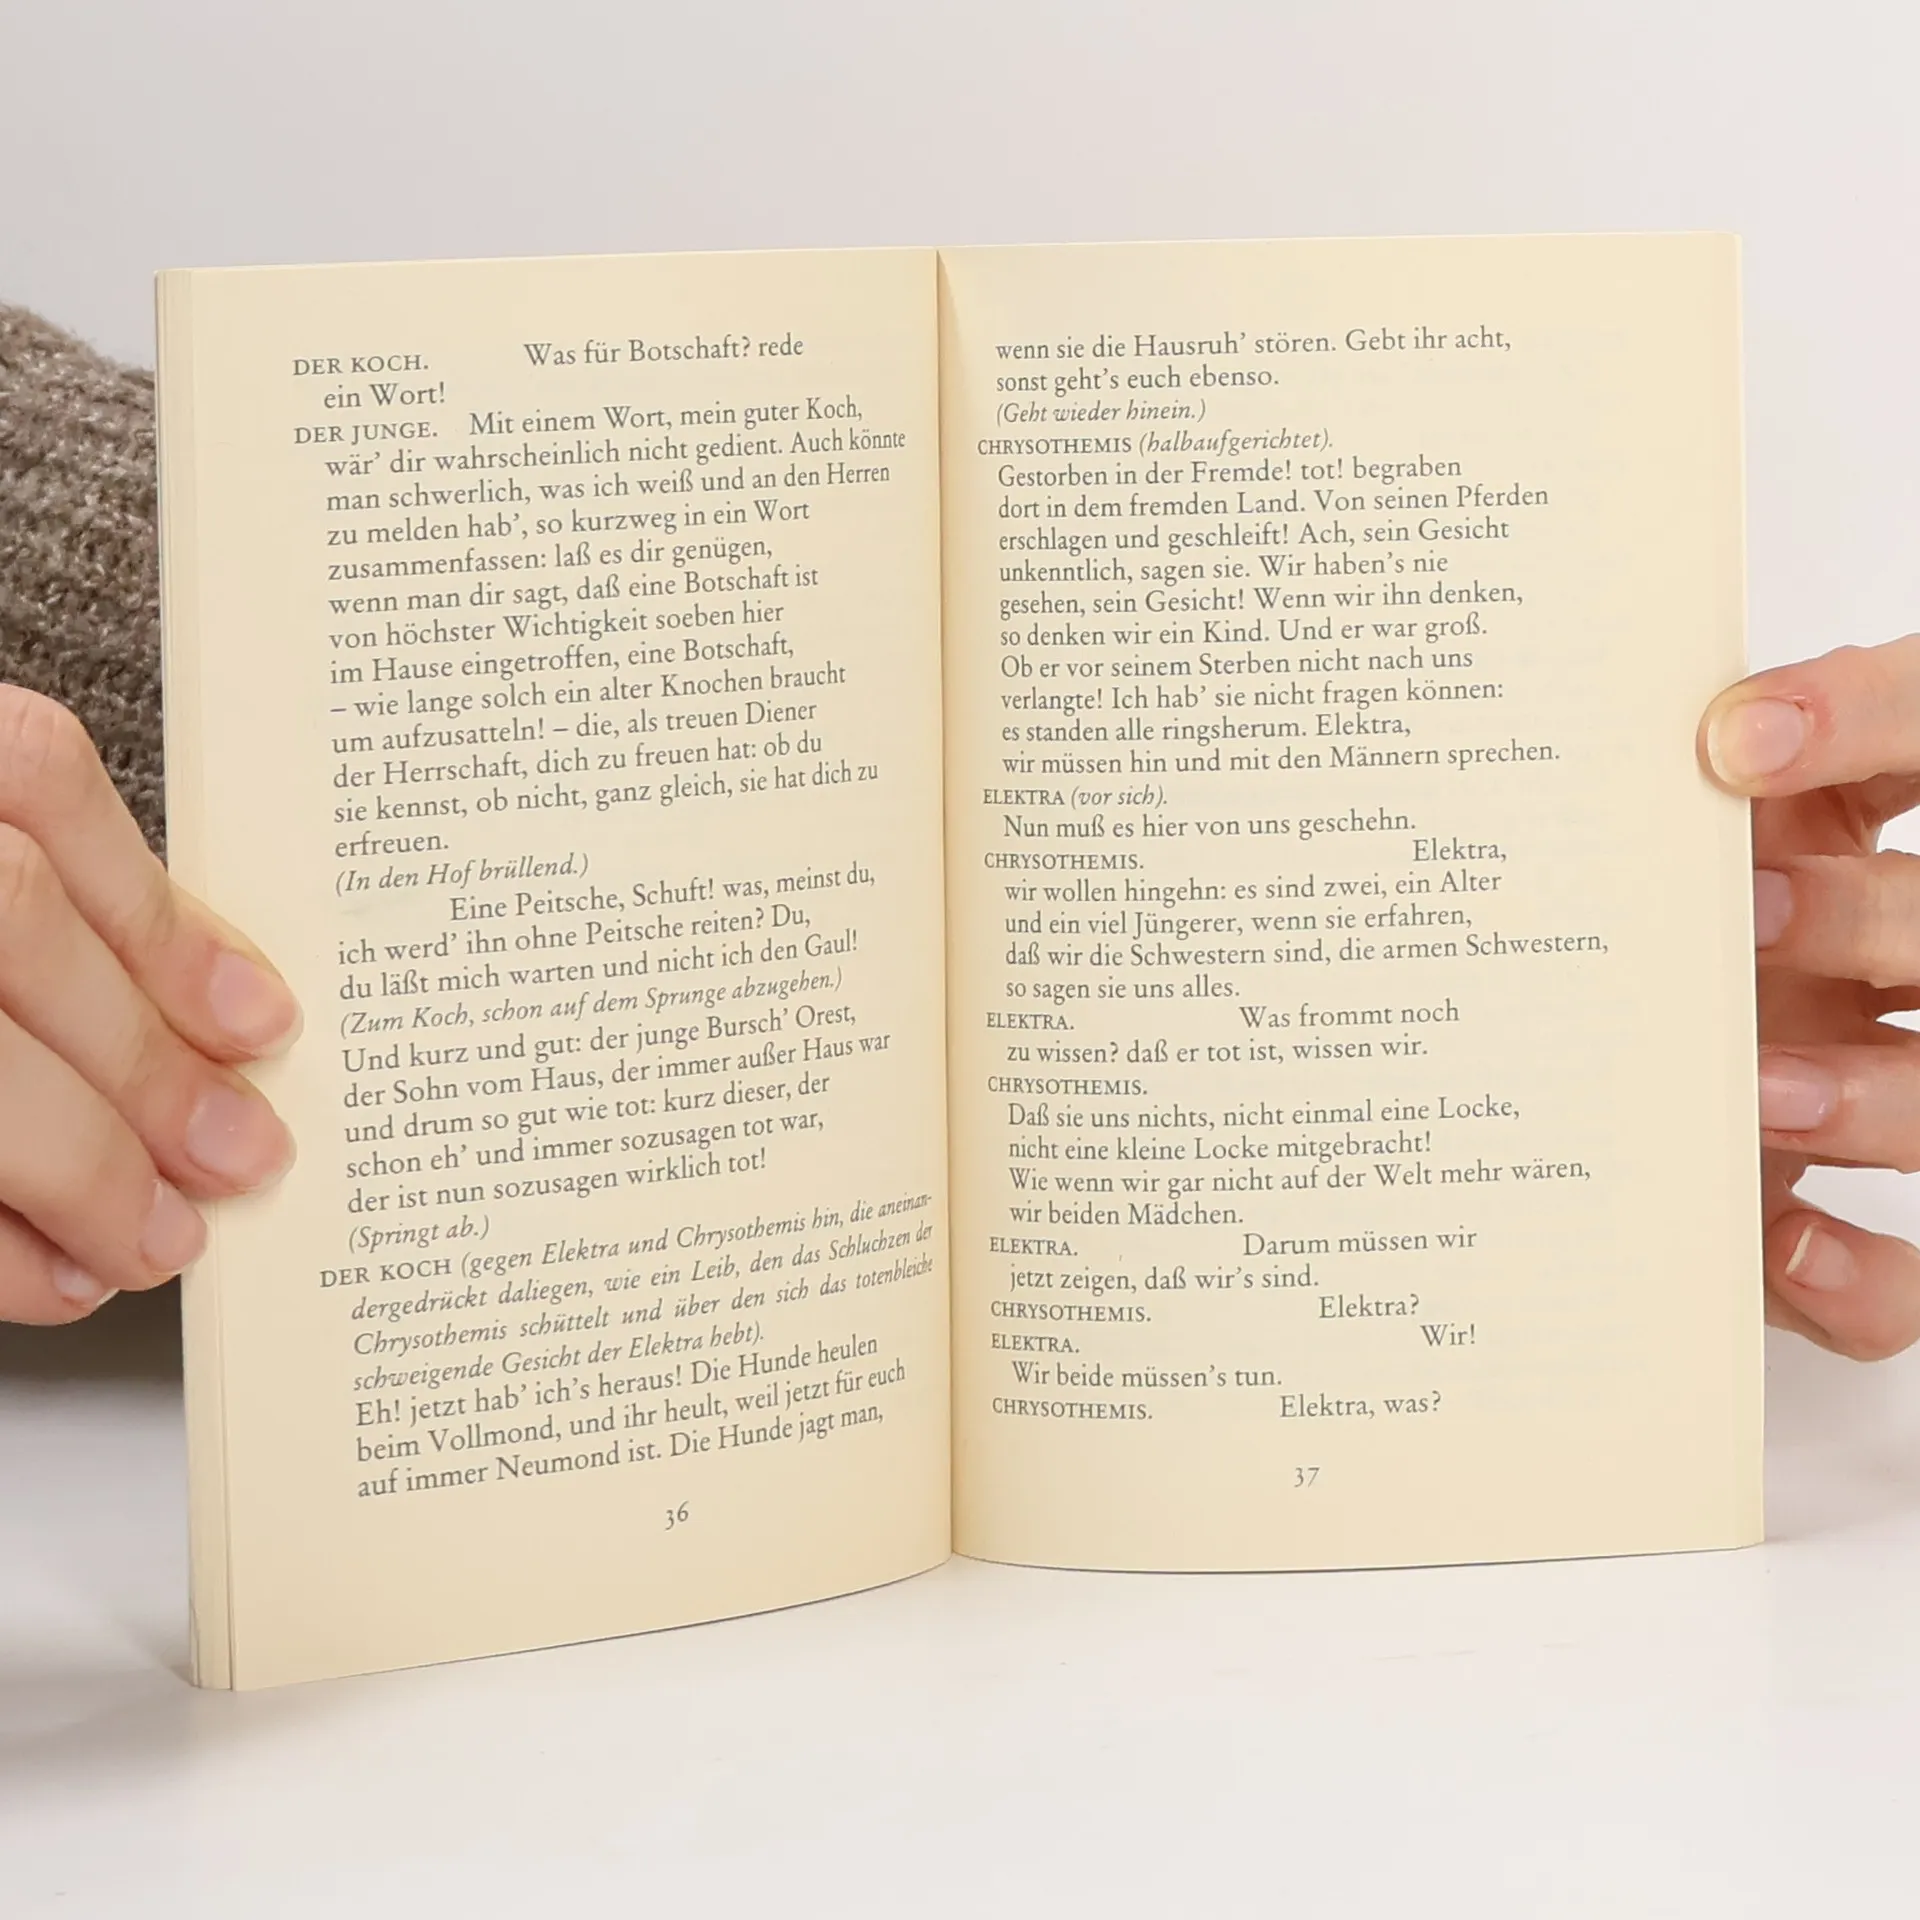 DER KOCH. Was für Botschaft? rede
ein Wort!
DER JUNGE. Mit einem Wort, mein guter Koch,
wär’ dir wahrscheinlich nicht gedient. Auch könnte
man schwerlich, was ich weiß und an den Herren
zu melden hab’, so kurzweg in ein Wort
zusammenfassen: laß es dir genügen,
wenn man dir sagt, daß eine Botschaft ist
von höchster Wichtigkeit soeben hier
im Hause eingetroffen, eine Botschaft,
– wie lange solch ein alter Knochen braucht
um aufzusatteln! – die, als treuen Diener
der Herrschaft, dich zu freuen hat: ob du
sie kennst, ob nicht, ganz gleich, sie hat dich zu
erfreuen.
(In den Hof brüllend.)
Eine Peitsche, Schuft! was, meinst du,
ich werd’ ihn ohne Peitsche reiten? Du,
du läßt mich warten und nicht ich den Gaul!
(Zum Koch, schon auf dem Sprunge abzugehen.)
Und kurz und gut: der junge Bursch’ Orest,
der Sohn vom Haus, der immer außer Haus war
und drum so gut wie tot: kurz dieser, der
schon eh’ und immer sozusagen tot war,
der ist nun sozusagen wirklich tot!
(Springt ab.)
DER KOCH (gegen Elektra und Chrysothemis hin, die aneinan-
dergedrückt daliegen, wie ein Leib, den das Schluchzen der
Chrysothemis schüttelt und über den sich das totenbleiche
schweigende Gesicht der Elektra hebt).
Eh! jetzt hab’ ich’s heraus! Die Hunde heulen
beim Vollmond, und ihr heult, weil jetzt für euch
auf immer Neumond ist. Die Hunde jagt man,
36
wenn sie die Hausruh’ stören. Gebt ihr acht,
sonst geht’s euch ebenso.
(Geht wieder hinein.)
CHRYSOTHEMIS (halbaufgerichtet).
Gestorben in der Fremde! tot! begraben
dort in dem fremden Land. Von seinen Pferden
erschlagen und geschleift! Ach, sein Gesicht
unkenntlich, sagen sie. Wir haben’s nie
gesehen, sein Gesicht! Wenn wir ihn denken,
so denken wir ein Kind. Und er war groß.
Ob er vor seinem Sterben nicht nach uns
verlangte! Ich hab’ sie nicht fragen können:
es standen alle ringsherum. Elektra,
wir müssen hin und mit den Männern sprechen.
ELEKTRA (vor sich).
Nun muß es hier von uns geschehn.
CHRYSOTHEMIS. Elektra,
wir wollen hingehn: es sind zwei, ein Alter
und ein viel Jüngerer, wenn sie erfahren,
daß wir die Schwestern sind, die armen Schwestern,
so sagen sie uns alles.
ELEKTRA. Was frommt noch
zu wissen? daß er tot ist, wissen wir.
CHRYSOTHEMIS.
Daß sie uns nichts, nicht einmal eine Locke,
nicht eine kleine Locke mitgebracht!
Wie wenn wir gar nicht auf der Welt mehr wären,
wir beiden Mädchen.
ELEKTRA. Darum müssen wir
jetzt zeigen, daß wir’s sind.
CHRYSOTHEMIS. Elektra?
ELEKTRA. Wir!
Wir beide müssen’s tun.
CHRYSOTHEMIS. Elektra, was?
37